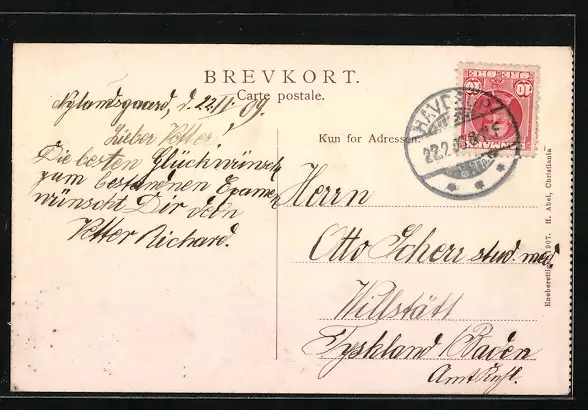 BREVKORT.
Carte postale.
Nylandsgaard, d. 22/II 09.
Lieber Vetter!
Die besten Glückwünsche
zum bestandnen Examen
wünscht Dir dein
Vetter Richard.
Kun for Adressen.
10 10
22.2.
Herrn
Otto Scherr stud. med.
Willstätt
Tyskland / Baden
Amt Kehl.
Eneberettiget 1907. H. Abel, Christiania